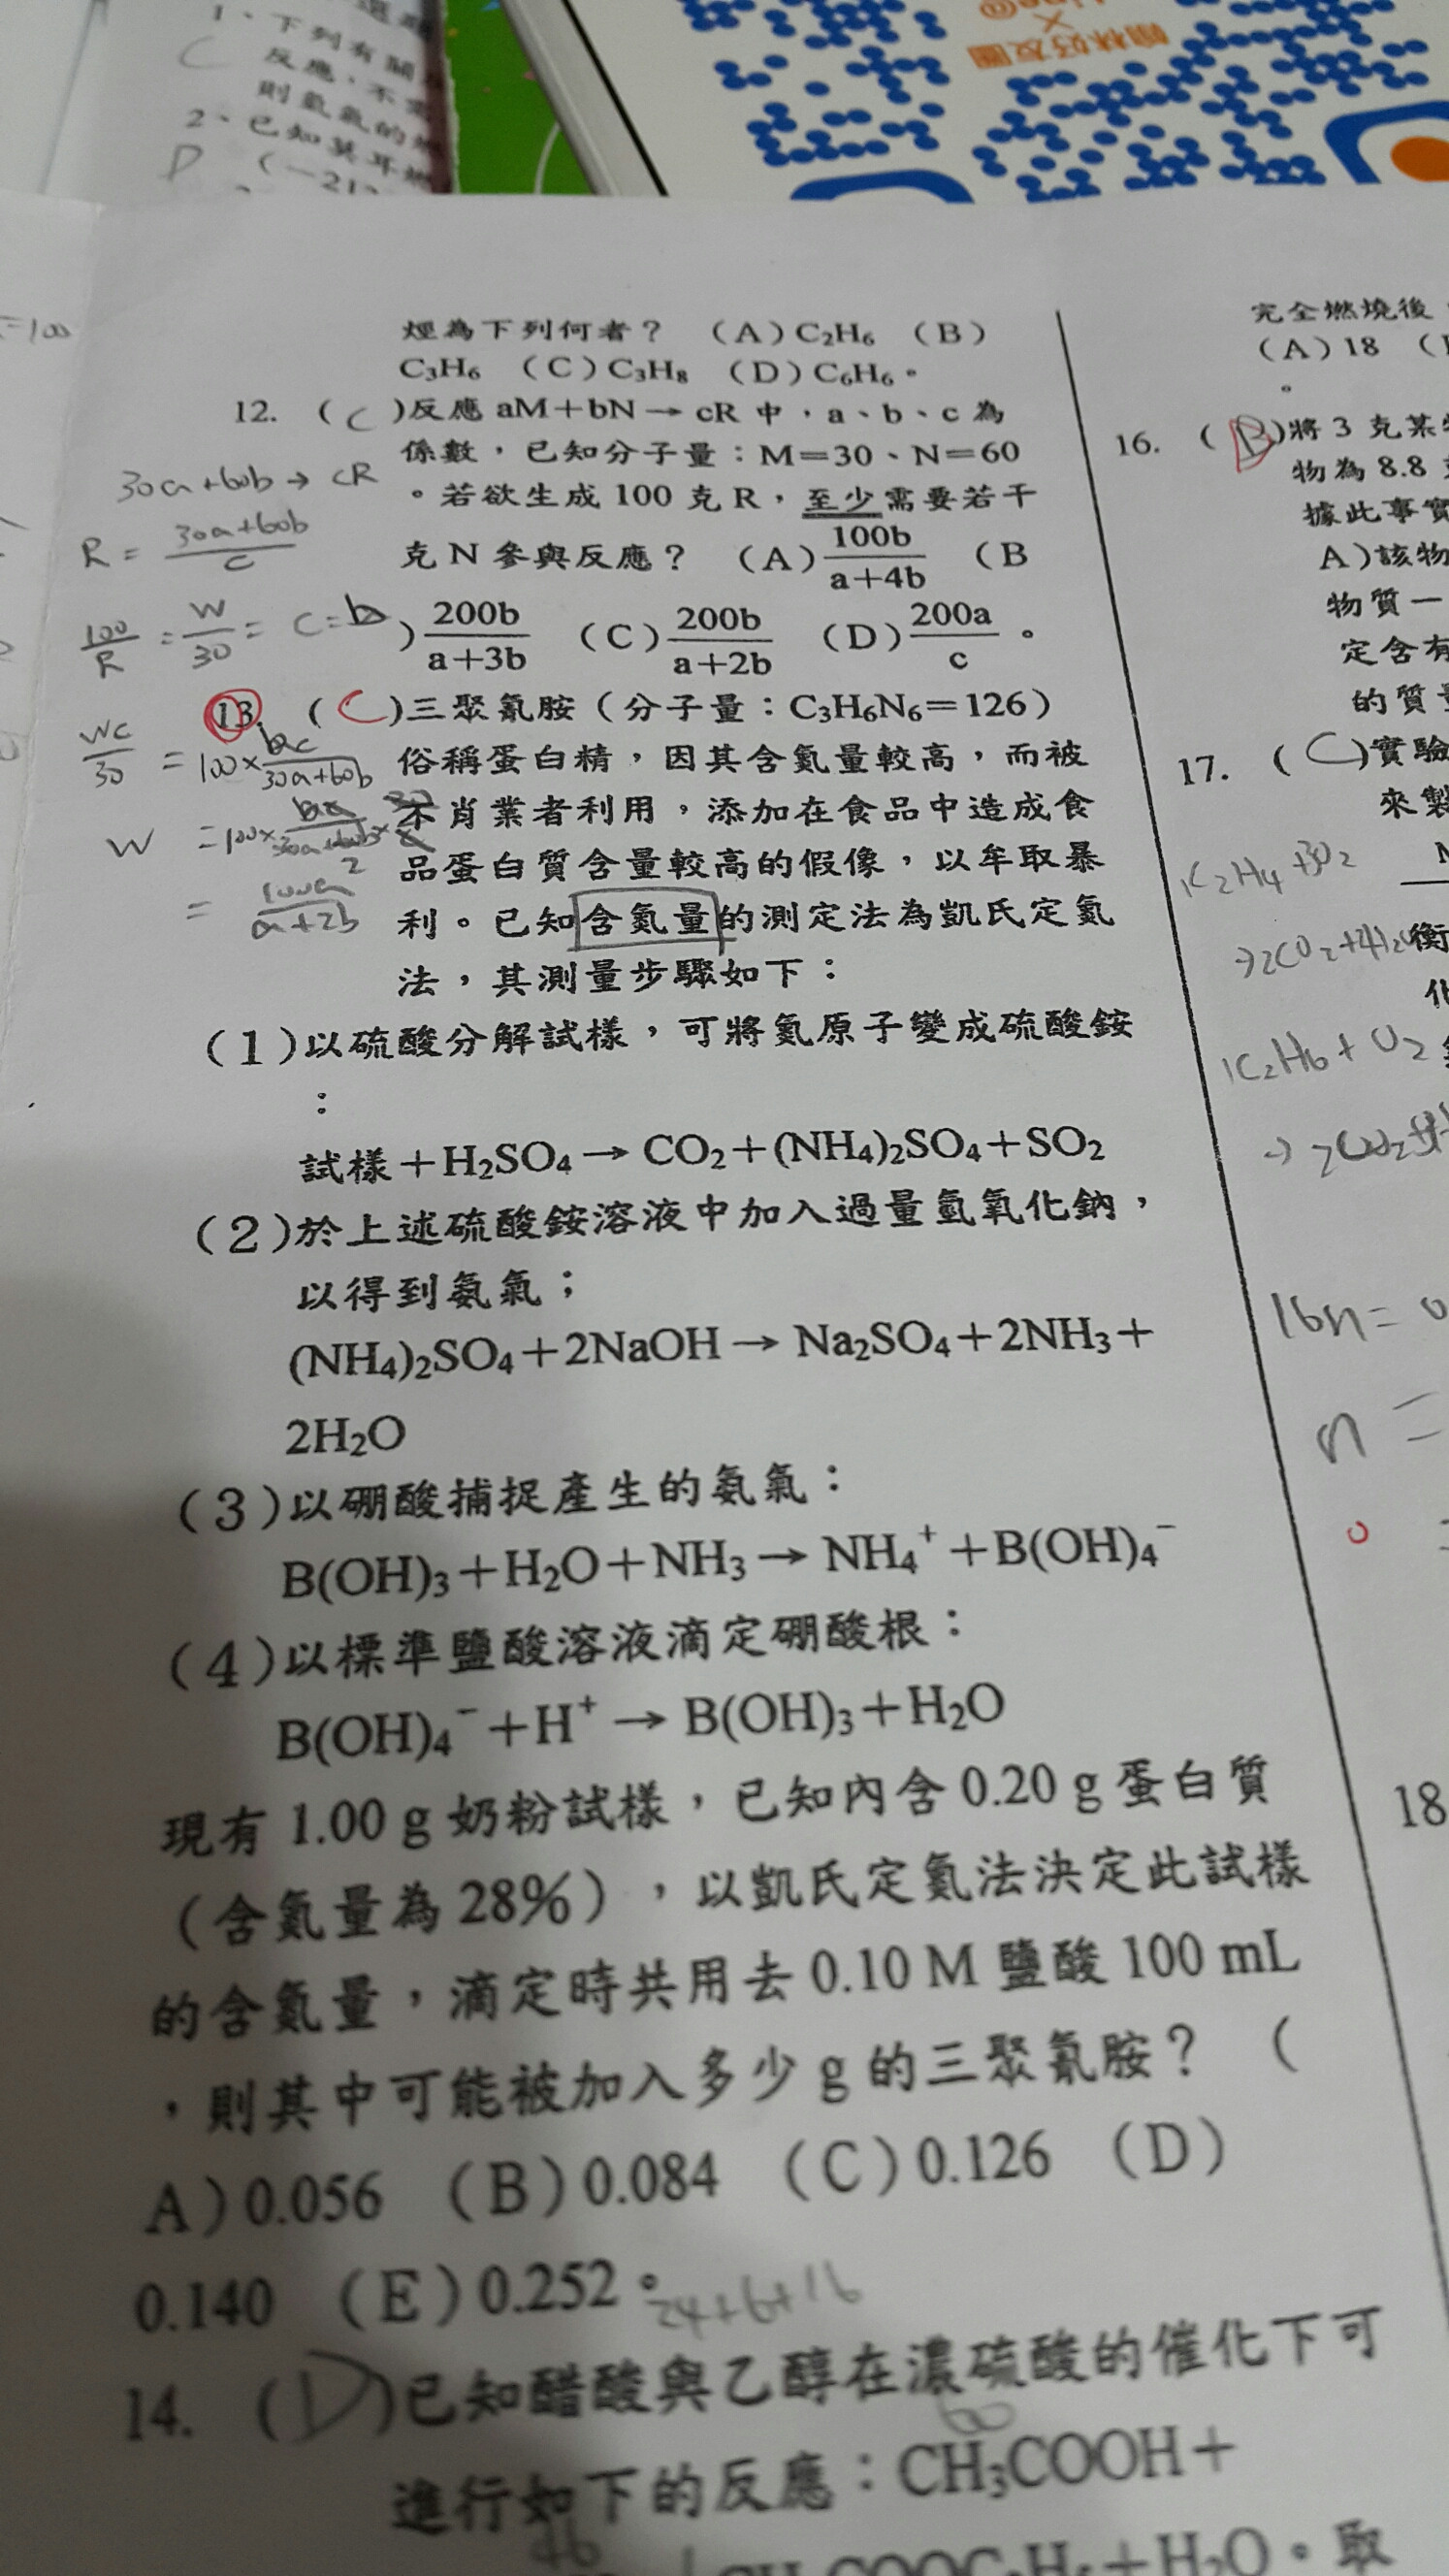 1、下列有關
C
反應,不需
則氫氣的
2、已知莫耳
D
(-21
翰林好友圈
=100
烴為下列何者? (A)C₂H₆ (B)
C₃H₆ (C)C₃H₈ (D)C₆H₆。
12. (C)反應 aM+bN→cR 中,a、b、c 為
係數,已知分子量:M=30、N=60
。若欲生成 100 克 R,至少需要若干
克 N 參與反應? (A)100b/a+4b (B
)200b/a+3b (C)200b/a+2b (D)200a/c。
30a+60b→cR
R=30a+60b/c
100/R=W/30=
WC/30=100×bc/30a+60b
W
=100a/a+2b
13. (C)三聚氰胺(分子量:C₃H₆N₆=126)
俗稱蛋白精,因其含氮量較高,而被
不肖業者利用,添加在食品中造成食
品蛋白質含量較高的假像,以牟取暴
利。已知含氮量的測定法為凱氏定氮
法,其測量步驟如下:
(1)以硫酸分解試樣,可將氮原子變成硫酸銨
:
試樣+H₂SO₄→CO₂+(NH₄)₂SO₄+SO₂
(2)於上述硫酸銨溶液中加入過量氫氧化鈉,
以得到氨氣;
(NH₄)₂SO₄+2NaOH→Na₂SO₄+2NH₃+
2H₂O
(3)以硼酸捕捉產生的氨氣:
B(OH)₃+H₂O+NH₃→NH₄⁺+B(OH)₄⁻
(4)以標準鹽酸溶液滴定硼酸根:
B(OH)₄⁻+H⁺→B(OH)₃+H₂O
現有 1.00 g 奶粉試樣,已知內含 0.20 g 蛋白質
(含氮量為 28%),以凱氏定氮法決定此試樣
的含氮量,滴定時共用去 0.10 M 鹽酸 100 mL
,則其中可能被加入多少 g 的三聚氰胺? (
A)0.056 (B)0.084 (C)0.126 (D)
0.140 (E)0.252。
24+6+16
14. (D)已知醋酸與乙醇在濃硫酸的催化下可
60
進行如下的反應:CH₃COOH+
46
+H₂O。取
完全燃燒後
(A)18 (
。
16. (B)將 3 克某
物為 8.8
據此事實
A)該物
物質一
定含有
的質量
17. (C)實驗
來製
1C₂H₄+3O₂
衡
化
1C₂H₆+O₂
16n=0
n=
18